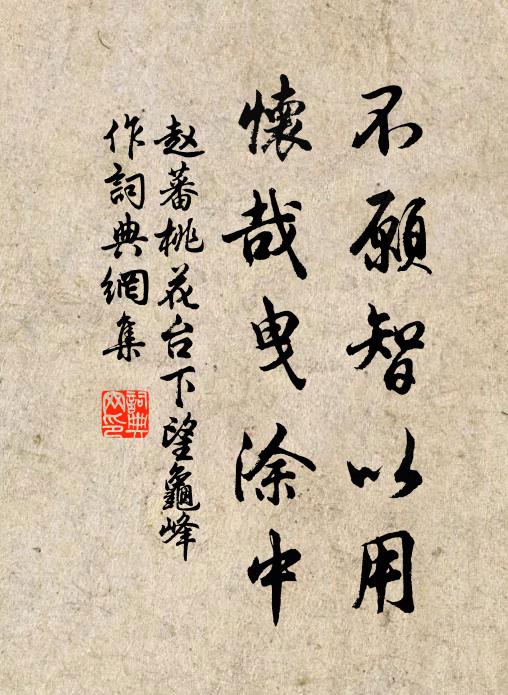 不願智以用
懷哉曳涂中
赵蕃桃花台下望龜峰
作詞典網集
詞典网印